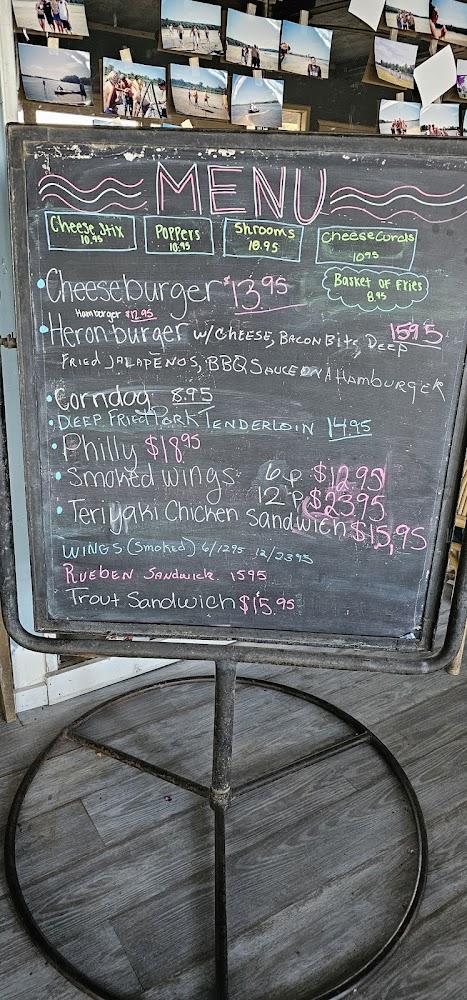 MENU
Cheese Stix
10.95
Poppers
10.95
Shrooms
10.95
Cheese Curds
1095
Basket of Fries
8.95
Cheeseburger $13.95
Hamburger $12.95
Heron burger w/ CHEESE, BACON Bits, DEEP 1595
FRIED JALAPENOS, BBQ SAUCE ON A HAMBURGER
Corndog 8.95
DEEP FRIED PORK TENDERLOIN 1495
Philly $18.95
Smoked wings 6 p $12.95
12 P $23.95
Teriyaki Chicken Sandwich $15.95
WINGS (Smoked) 6/1295 12/2395
RUEBEN SANDWICK 1595
Trout Sandwich $15.95